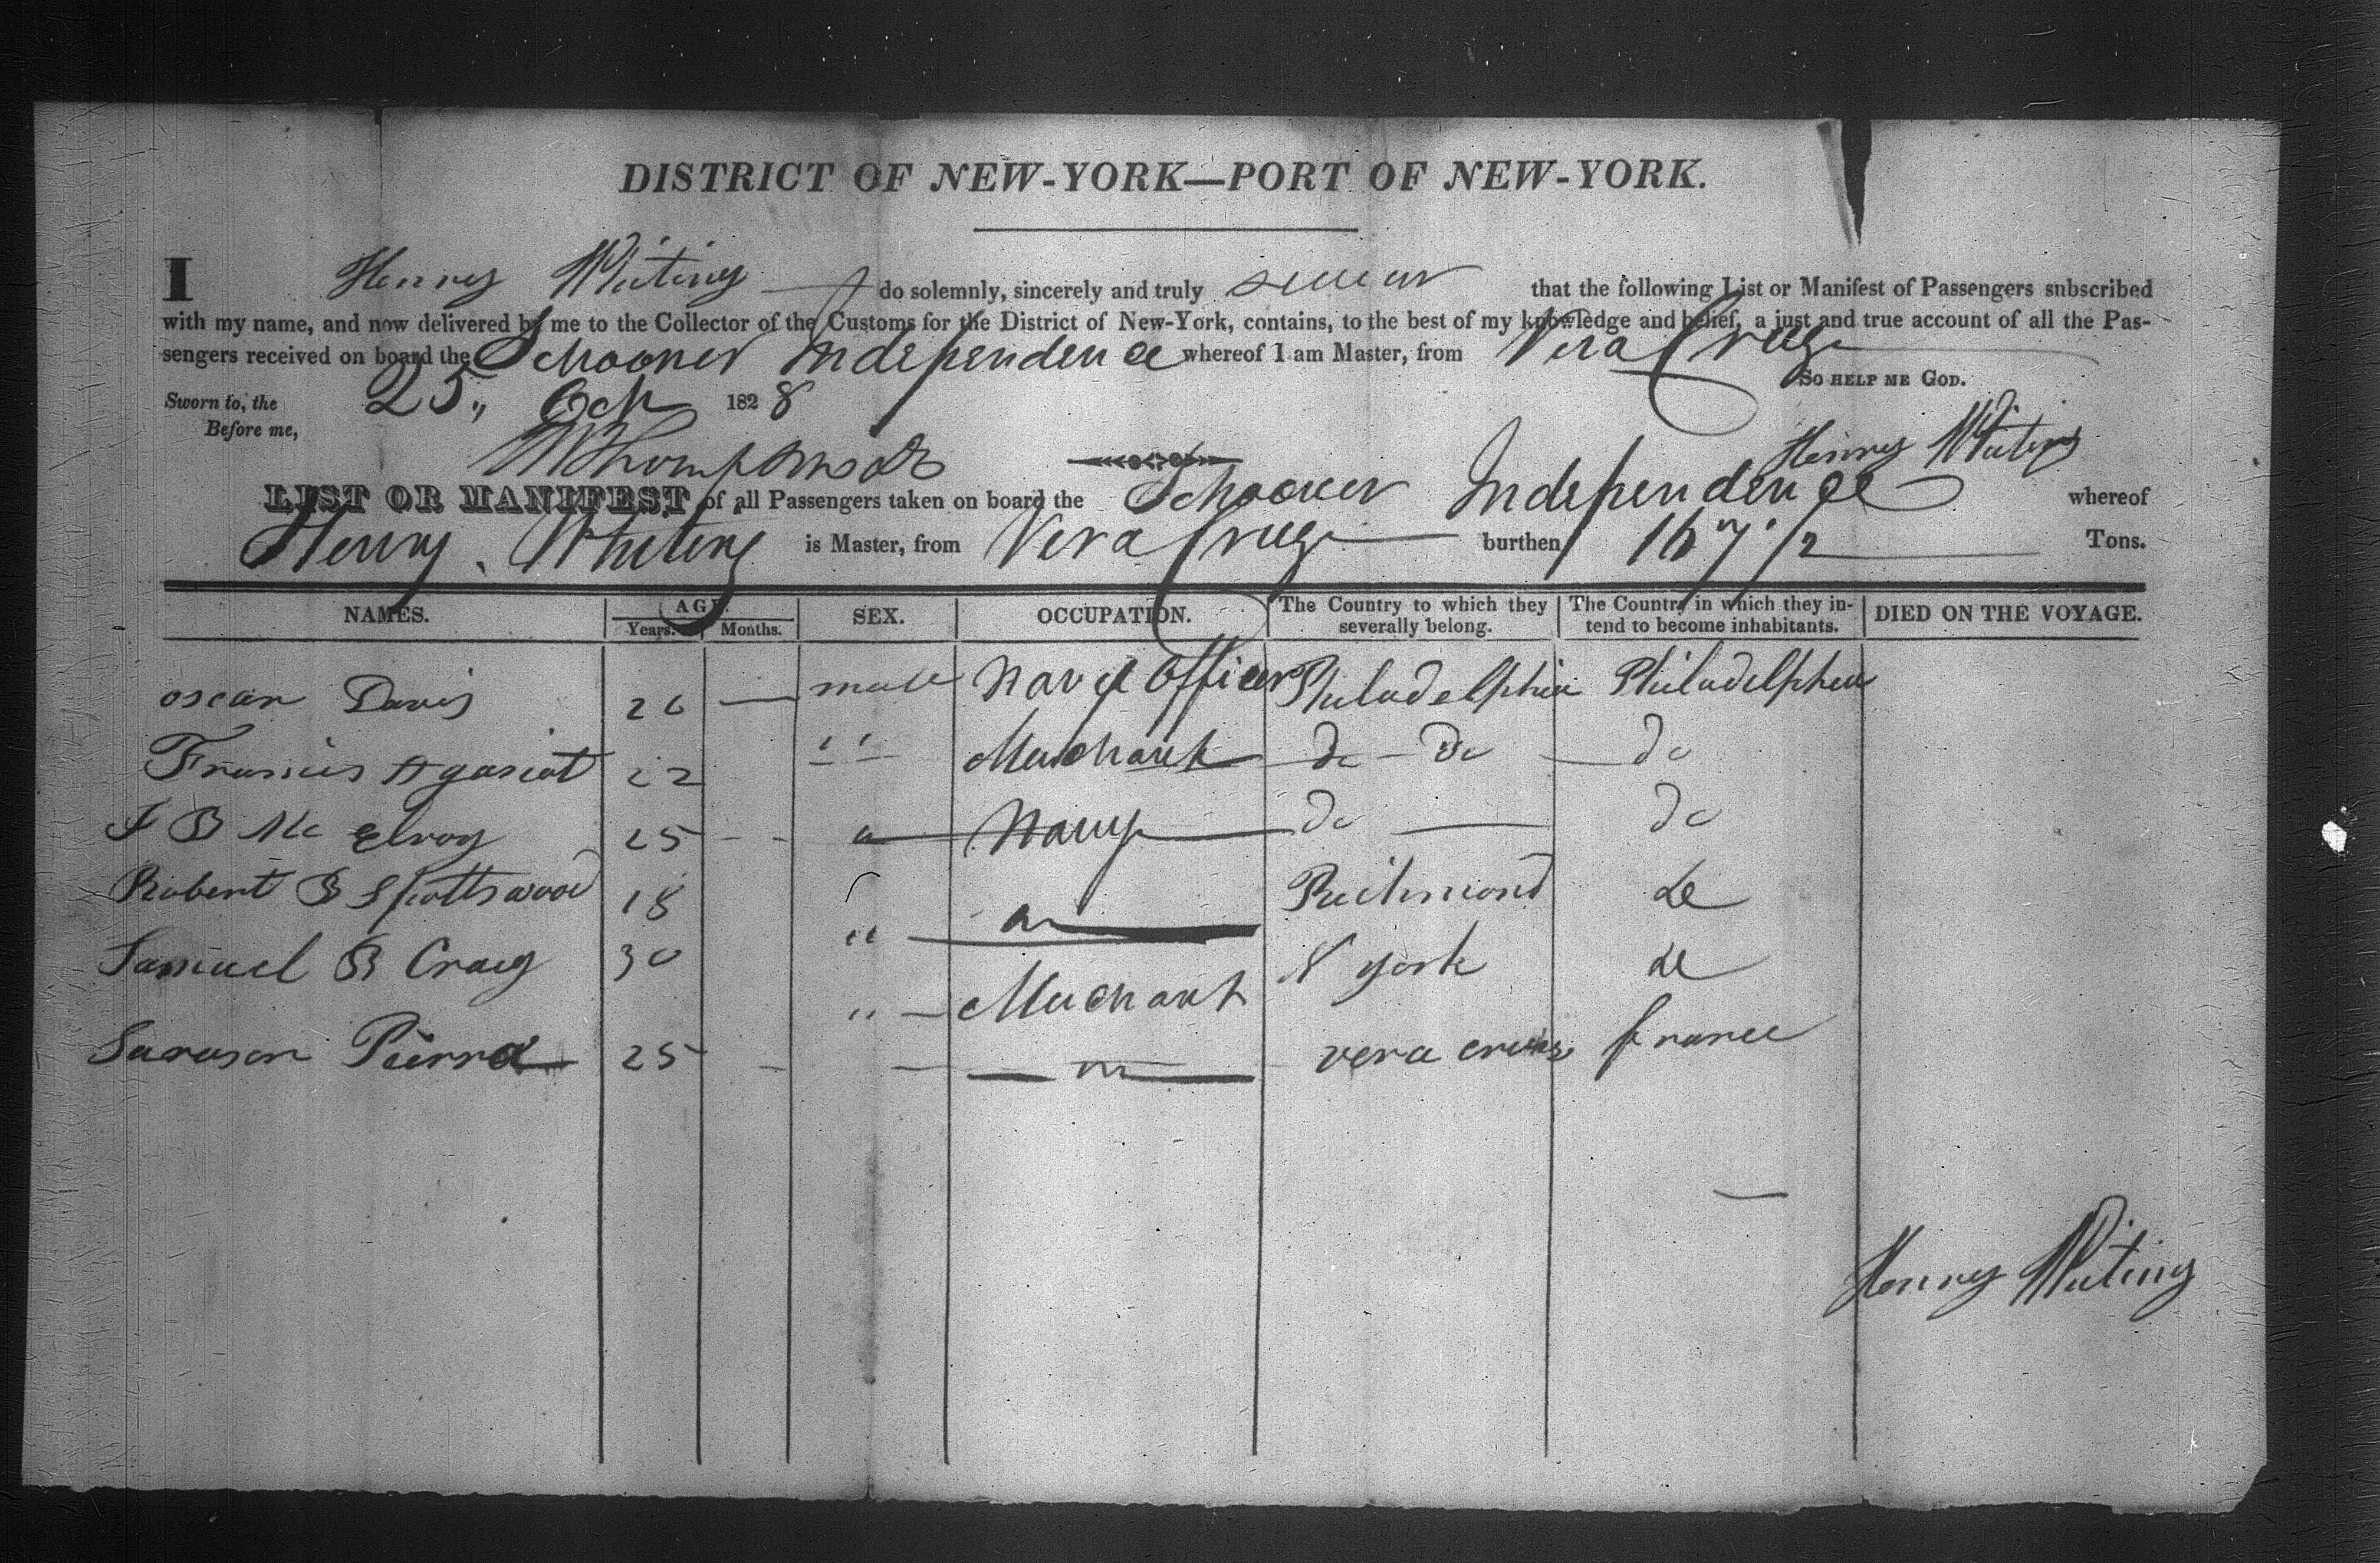 DISTRICT OF NEW-YORK—PORT OF NEW-YORK.
I Henry Whiting do solemnly, sincerely and truly swear that the following List or Manifest of Passengers subscribed
with my name, and now delivered by me to the Collector of the Customs for the District of New-York, contains, to the best of my knowledge and belief, a just and true account of all the Pas-
sengers received on board the Schooner Independence whereof I am Master, from Vera Cruz
SO HELP ME GOD.
Sworn to, the 25,, Oct 1828
Before me,
Henry Whiting
LIST OR MANIFEST of all Passengers taken on board the Schooner Independence whereof
Henry Whiting is Master, from Vera Cruz burthen 167 1/2 Tons.
NAMES. AGE. Years. Months. SEX. OCCUPATION. The Country to which they severally belong. The Country in which they in-tend to become inhabitants. DIED ON THE VOYAGE.
oscar Davis 26 — male Navy Officer Philadelphia Philadelphia
Francis 22 " Merchant do - do do
J B Mc Elroy 25 - - " Navy do — do
Robert B Spottswood 18 " Richmond do
Samuel B Craig 30 " Merchant N york do
Pierra 25 - - — " — vera cruz france
Henry Whiting